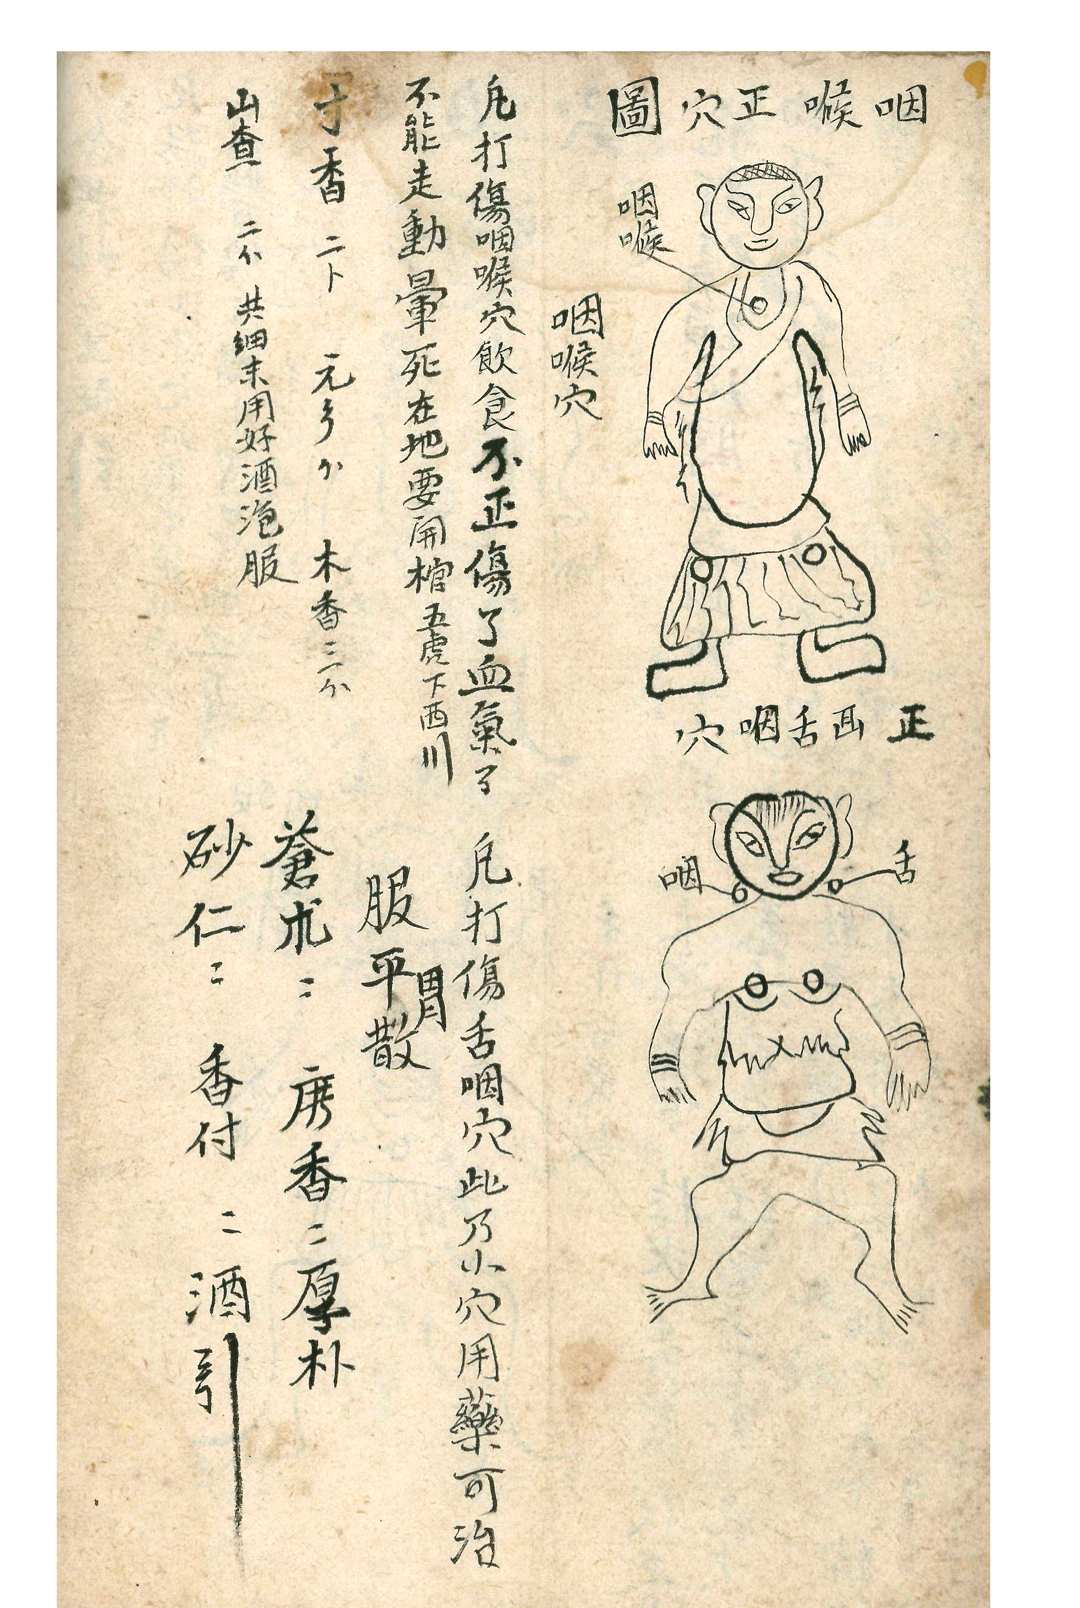 咽喉正穴圖
咽喉
咽喉穴
凢打傷咽喉穴飲食不正傷了血氣了
不能走動暈死在地要開棺五虎下西川
寸香二卜 元 木香三
山查 共細末用好酒泡服
正面舌咽穴
舌
咽
凢打傷舌咽穴此乃小穴用藥可治
服平胃散
蒼朮二 香二厚朴
砂仁二 香付二酒引